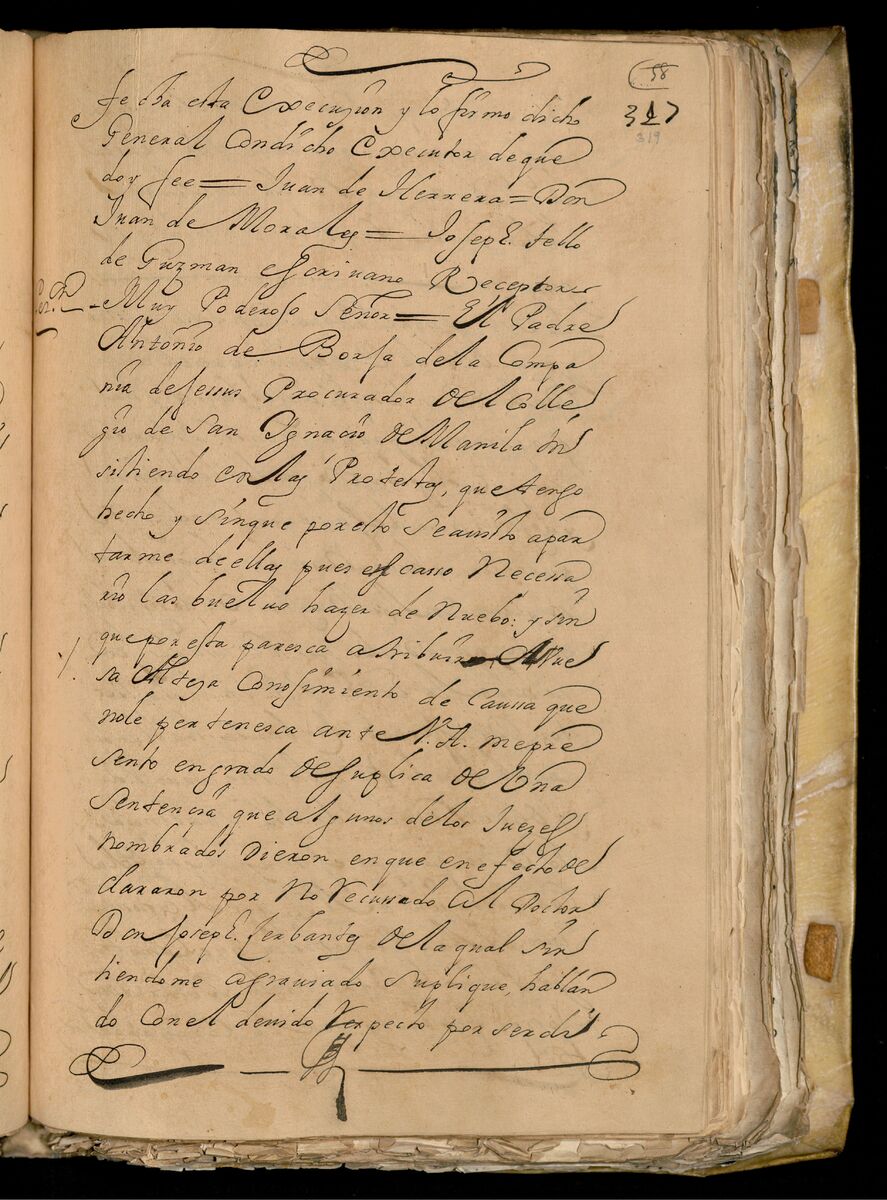 58
317
319
fecha esta Execusion y lo firmo dicho
General Condicho Executor deque
doy fee = Juan de Herrera = Don
Juan de Morales = Joseph. tello
de Guzman escrivano Receptor
Muy Poderoso Señor = El Padre
Antonio de Borja dela Compa
nia de Jessus Procurador del Colle
gio de San Ygnacio de Manila in
sistiendo en las Protestas, que tengo
hecho y sinque poresto sea visto apar
tarme de ellas pues es Casso Necessa
rio las buelvo hazer de Nuebo: y sin
que por esta paresca atribuir A Vue
sa Alteza Conosimiento de Caussa que
nole pertenesca ante V. A. me pre
sento en grado de suplica de Una
sentencia que algunos delos Juezes
nombrados Dieron en que en efecto de
clararon por No recussado al Doctor
Don Joseph. Cerbantes de la qual sin
tiendome agraviado suplique, hablan
do Con el devido respecto por ser di